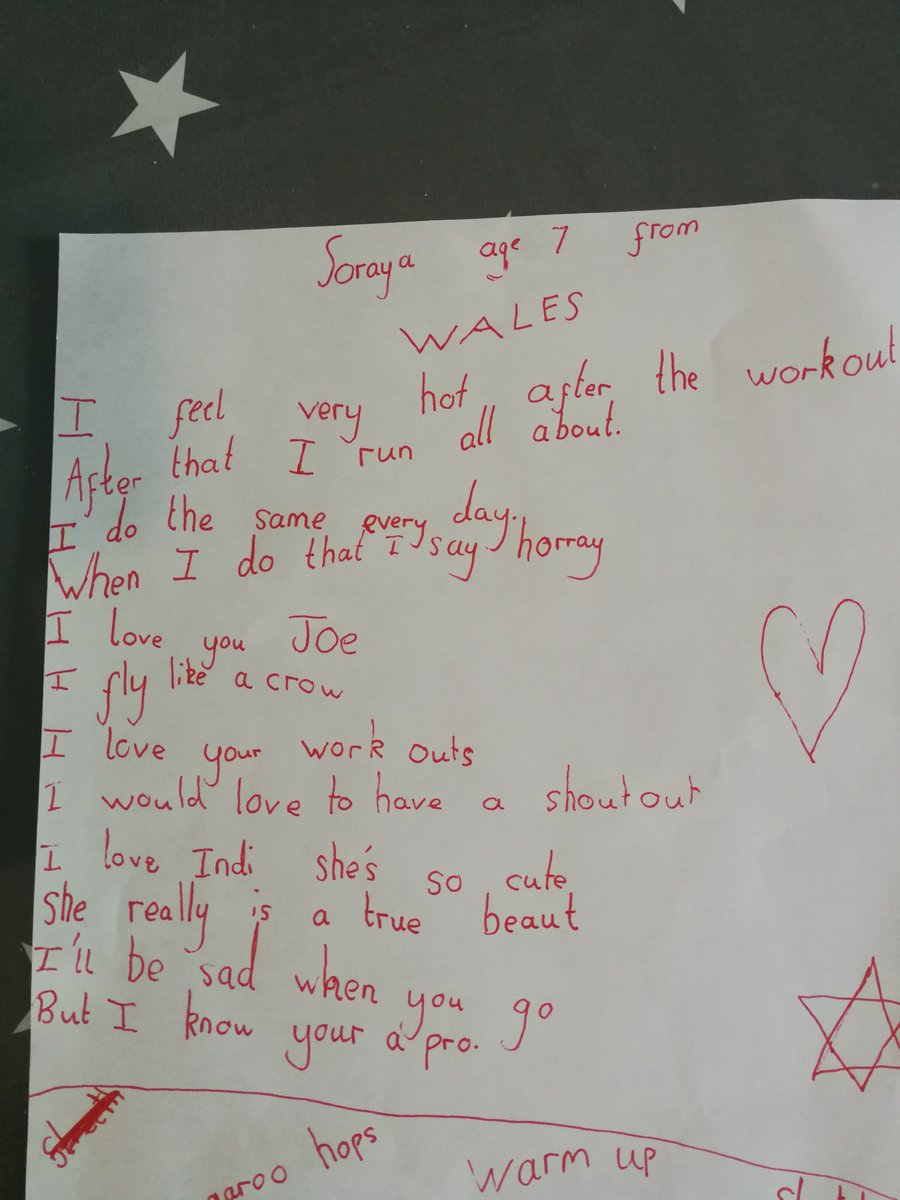 Soraya age 7 from
WALES
I feel very hot after the workout
After that I run all about.
I do the same every day.
When I do that I say horray
I love you JOe
I fly like a crow
I love your work outs
I would love to have a shout out
I love Indi she's so cute
She really is a true beaut
I'll be sad when you go
But I know your a pro.
hops
warm up